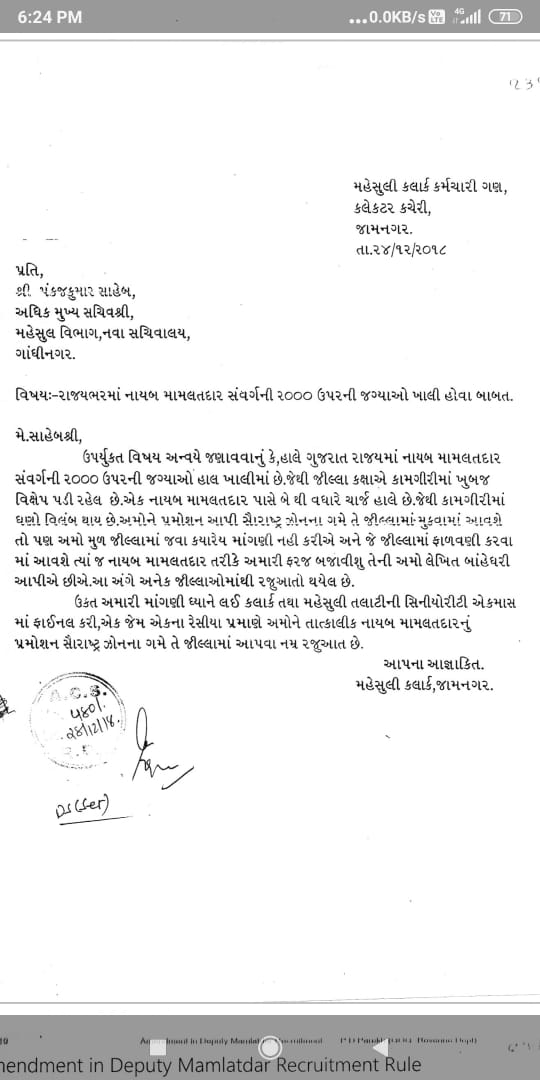 6:24 PM
...0.0KB/s
4G
71
મહેસુલી કલાર્ક કર્મચારી ગણ,
કલેકટર કચેરી,
જામનગર.
તા.૨૪/૧૨/૨૦૧૮
પ્રતિ,
શ્રી પંકજકુમાર સાહેબ,
અધિક મુખ્ય સચિવશ્રી,
મહેસુલ વિભાગ,નવા સચિવાલય,
ગાંધીનગર.
વિષયઃ-રાજયભરમાં નાયબ મામલતદાર સંવર્ગની ૨૦૦૦ ઉપરની જગ્યાઓ ખાલી હોવા બાબત.
મે.સાહેબશ્રી,
ઉપર્યુકત વિષય અન્વયે જણાવવાનું કે,હાલે ગુજરાત રાજયમાં નાયબ મામલતદાર
સંવર્ગની ૨૦૦૦ ઉપરની જગ્યાઓ હાલ ખાલીમાં છે.જેથી જીલ્લા કક્ષાએ કામગીરીમાં ખુબજ
વિક્ષેપ પડી રહેલ છે.એક નાયબ મામલતદાર પાસે બે થી વધારે ચાર્જ હાલે છે.જેથી કામગીરીમાં
ઘણો વિલંબ થાય છે.અમોને પ્રમોશન આપી સૌરાષ્ટ્ર ઝોનના ગમે તે જીલ્લામાં મુકવામાં આવશે
તો પણ અમો મુળ જીલ્લામાં જવા કયારેય માંગણી નહી કરીએ અને જે જીલ્લામાં ફાળવણી કરવા
માં આવશે ત્યાં જ નાયબ મામલતદાર તરીકે અમારી ફરજ બજાવીશુ તેની અમો લેખિત બાંહેધરી
આપીએ છીએ.આ અંગે અનેક જીલ્લાઓમાંથી રજુઆતો થયેલ છે.
ઉકત અમારી માંગણી ધ્યાને લઈ કલાર્ક તથા મહેસુલી તલાટીની સિનીયોરીટી એકમાસ
માં ફાઈનલ કરી,એક જેમ એકના રેસીયા પ્રમાણે અમોને તાત્કાલીક નાયબ મામલતદારનું
પ્રમોશન સૌરાષ્ટ્ર ઝોનના ગમે તે જીલ્લામાં આપવા નમ્ર રજૂઆત છે.
આપના આજ્ઞાકિત.
મહેસુલી કલાર્ક,જામનગર.
A.C.S.
DS(Ser)
mendment in Deputy Mamlatdar Recruitment Rule